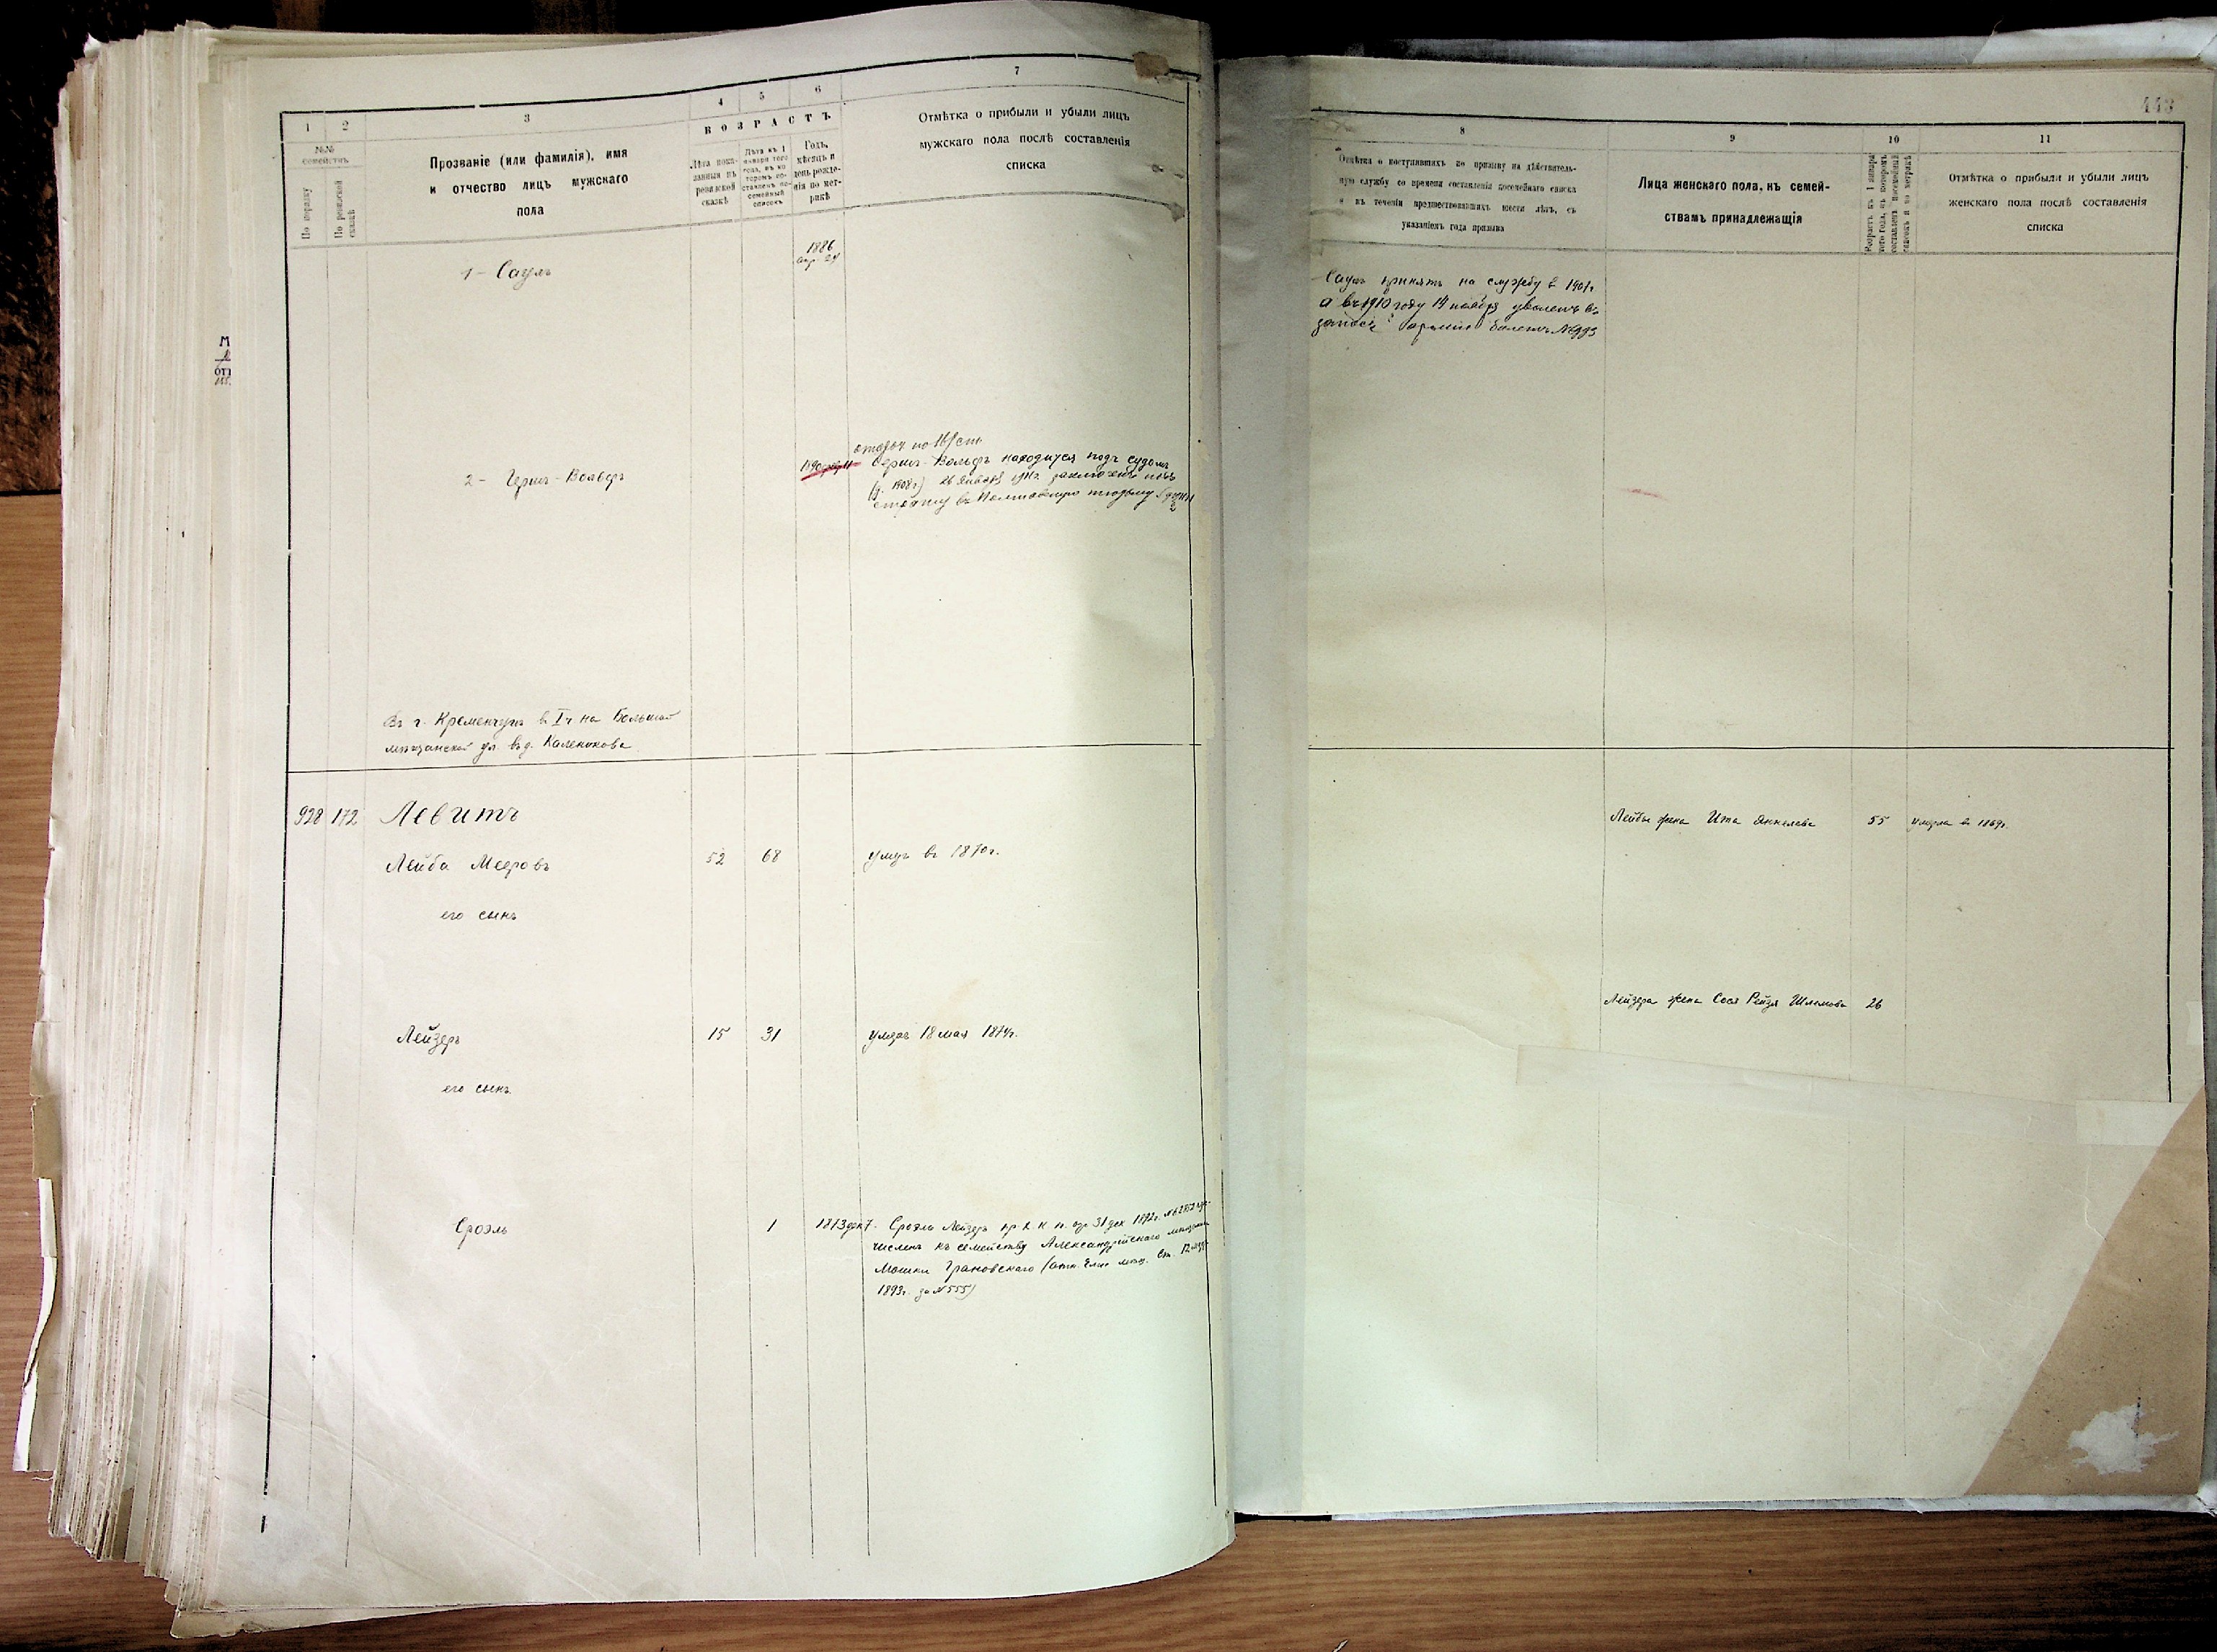 1
2
3
4
5
6
7
№№ семействъ
По порядку
По ревизской сказкѣ
Прозваніе (или фамилія), имя
и отчество лицъ мужскаго
пола
ВОЗРАСТЪ
Лѣта пока-
занныя въ
ревизской
сказкѣ
Лѣта къ 1
января того
года, въ ко-
торомъ со-
ставленъ по-
семейный
списокъ
Годъ,
мѣсяцъ и
день рожде-
нія по мет-
рикѣ
Отмѣтка о прибыли и убыли лицъ
мужскаго пола послѣ составленія
списка
1 - Саулъ
1886
апр. 24
2 - Гершъ-Вольфъ
Гершъ-Вольфъ находится подъ судомъ
26 января 1911г. заключенъ
въ Полтавскую тюрьму
Въ г. Кременчугѣ в I ч на Большой
мѣщанской ул. въ д. Каленикова
928 172 Левитъ
Лейба Мееровъ 52 68 умеръ въ 1870г.
его сынъ
Лейзеръ 15 31 умеръ 18 мая 1874г.
его сынъ
Сроэль 1 1873 дек 7.
Сроэль Лейзеръ 31 дек 1892г.
численъ къ семейству Александрійскаго мѣщанина
Мошки Грановскаго
1893г. за №555)
443
8
9
10
11
Отмѣтка о поступившихъ по призыву на дѣйствитель-
ную службу со времени составленія посемейнаго списка
и въ теченіи предшествовавшихъ шести лѣтъ, съ
указаніемъ года призыва
Лица женскаго пола, къ семей-
ствамъ принадлежащія
Возрастъ къ 1 января
того года, въ которомъ
составленъ посемейный
списокъ и по метрикѣ
Отмѣтка о прибыли и убыли лицъ
женскаго пола послѣ составленія
списка
Саулъ принятъ на службу в 1907г
а въ 1910 году 14 ноября уволенъ въ
запасъ арміи билетъ №993
Лейбы жена Ита Янкелева 55 умерла въ 1869г.
Лейзера жена Сося Рейзя Шлемова 26